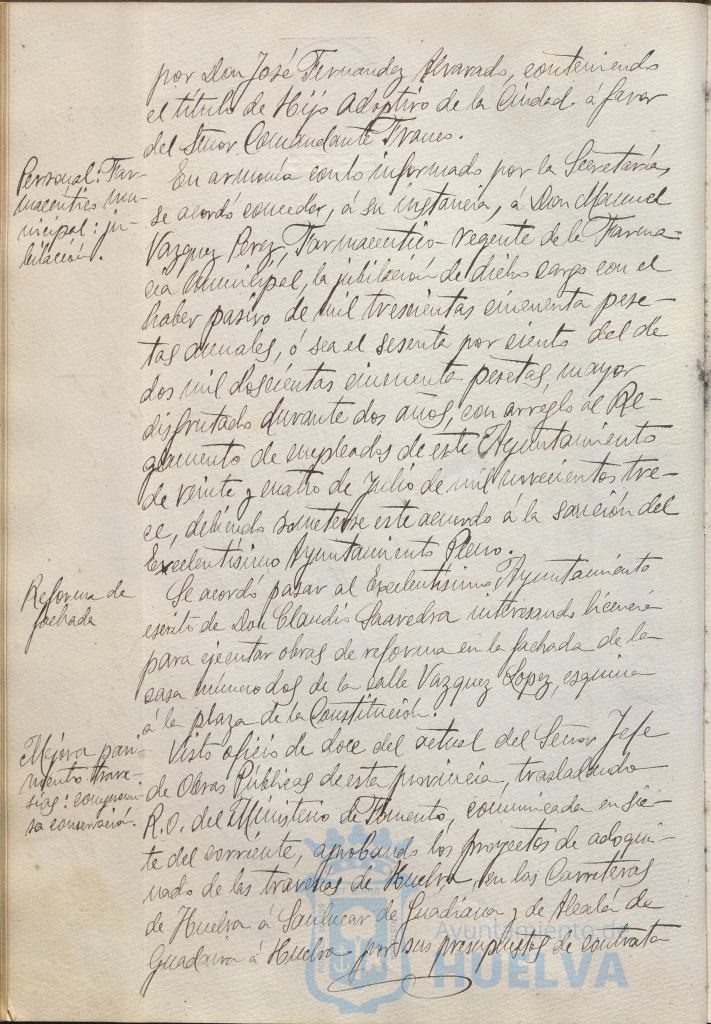 por Don José Fernandez Alvarado, conteniendo
el título de Hijo Adoptivo de la Ciudad á favor
del Señor Comandante Franco.
Personal: Far-
maceútico mu-
nicipal: ju-
bilación.
En armonía con lo informado por la Secretaría,
se acordó conceder, á su instancia, á Don Manuel
Vazquez Perez, Farmaceutico-regente de la Farma-
cia Municipal, la jubilación de dicho cargo con el
haber pasivo de mil trescientas cincuenta pese-
tas anuales, ó sea el sesenta por ciento del de
dos mil doscientas cincuenta pesetas, mayor
disfrutado durante dos años, con arreglo al Re-
glamento de empleados de éste Ayuntamiento
de veinte y cuatro de Julio de mil novecientos tre-
ce, debiendo someterse este acuerdo á la sanción del
Excelentísimo Ayuntamiento Pleno.
Reforma de
fachada
Se acordó pasar al Excelentísimo Ayuntamiento
escrito de Don Claudio Saavedra interesando licencia
para ejecutar obras de reforma en la fachada de la
casa número dos de la calle Vazquez Lopez, esquina
á la plaza de la Constitución.
Mejora pavi-
mento trave-
sias: compromi-
so conservación.
Visto oficio de doce del actual del Señor Jefe
de Obras Públicas de esta provincia, trasladando
R.O. del Ministerio de Fomento, comunicada en sie-
te del corriente, aprobando los proyectos de adoqui-
nado de las travesias de Huelva, en las Carreteras
de Huelva á Sanlucar de Guadiana y de Alcalá de
Guadaira á Huelva por sus presupuestos de contrata
Ayuntamiento de
HUELVA